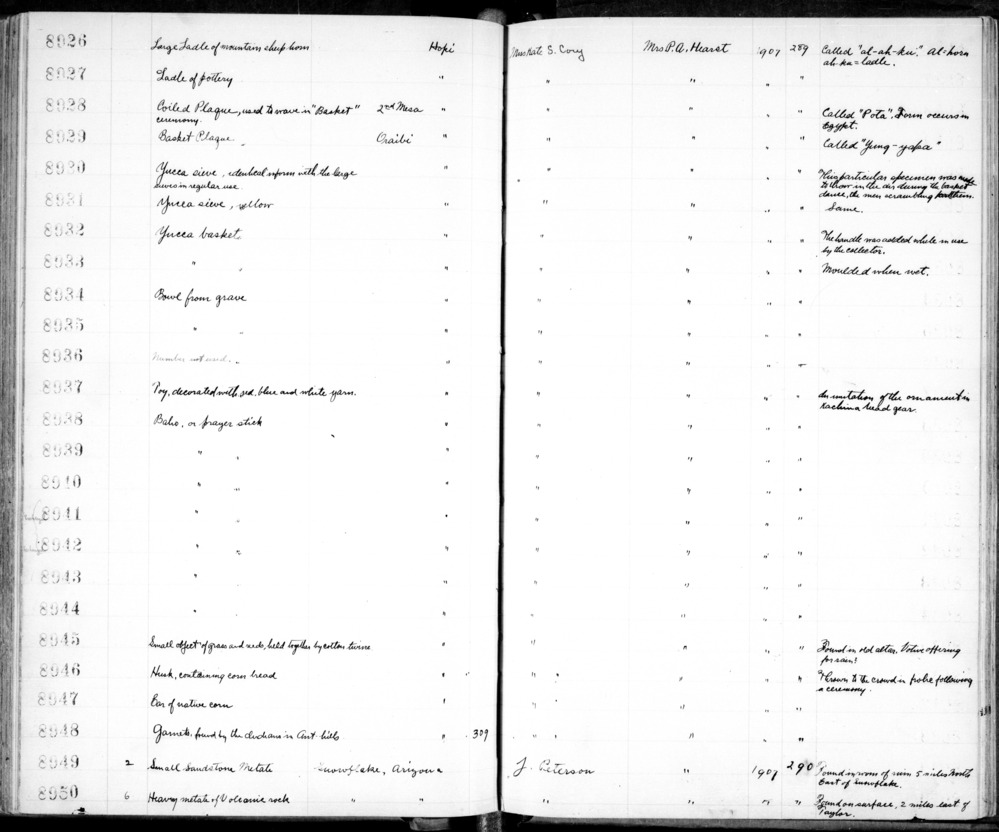 8926 Large Ladle of mountain sheep horn Hopi Miss Kate S. Cory Mrs P.A. Hearst 1907 289 Called "al-ah-ku." Al=horn
ah-ku = ladle.
8927 Ladle of pottery " " " " "
8928 Coiled Plaque, used to wave in "Basket" 2nd Mesa " " " " " Called "Pota". Form occurs in
ceremony. Egypt.
8929 Basket Plaque Oraibi " " " " " Called "Yung-yapa"
8930 Yucca sieve, identical in form with the large " " " " " This particular specimen was made
sieves in regular use. to throw in the air during the basket
dance, the men scrambling for them.
8931 Yucca sieve, yellow " " " " " Same.
8932 Yucca basket " " " " " The handle was added while in use
by the collector.
8933 " " " " " " " Moulded when wet.
8934 Bowl from grave " " " " "
8935 " " " " " " "
8936 Number not used. " " " " "
8937 Toy, decorated with red, blue and white yarn. " " " " " An imitation of the ornament in
Kachina head gear.
8938 Baho, or prayer stick " " " " "
8939 " " " " " " "
8940 " " " " " " "
8941 " " " " " " "
8942 " " " " " " "
8943 " " " " " " "
8944 " " " " " " "
8945 Small object of grass and reeds, held together by cotton twine " " " " Found in old altar. Votive offering
for rain?
8946 Husk, containing corn bread " " " " " " Thrown to the crowd in frolic following
a ceremony.
8947 Ear of native corn " " " " " "
8948 Garnets, found by the Indians in Ant-hills " 309 " " " " "
8949 2 Small sandstone Metate Snowflake, Arizona J. Peterson " 1907 290 Found in room of ruin 5 miles North
East of Snowflake.
8950 6 Heavy metate of Volcanic rock " " " " " " Found on surface, 2 miles east of
Taylor.